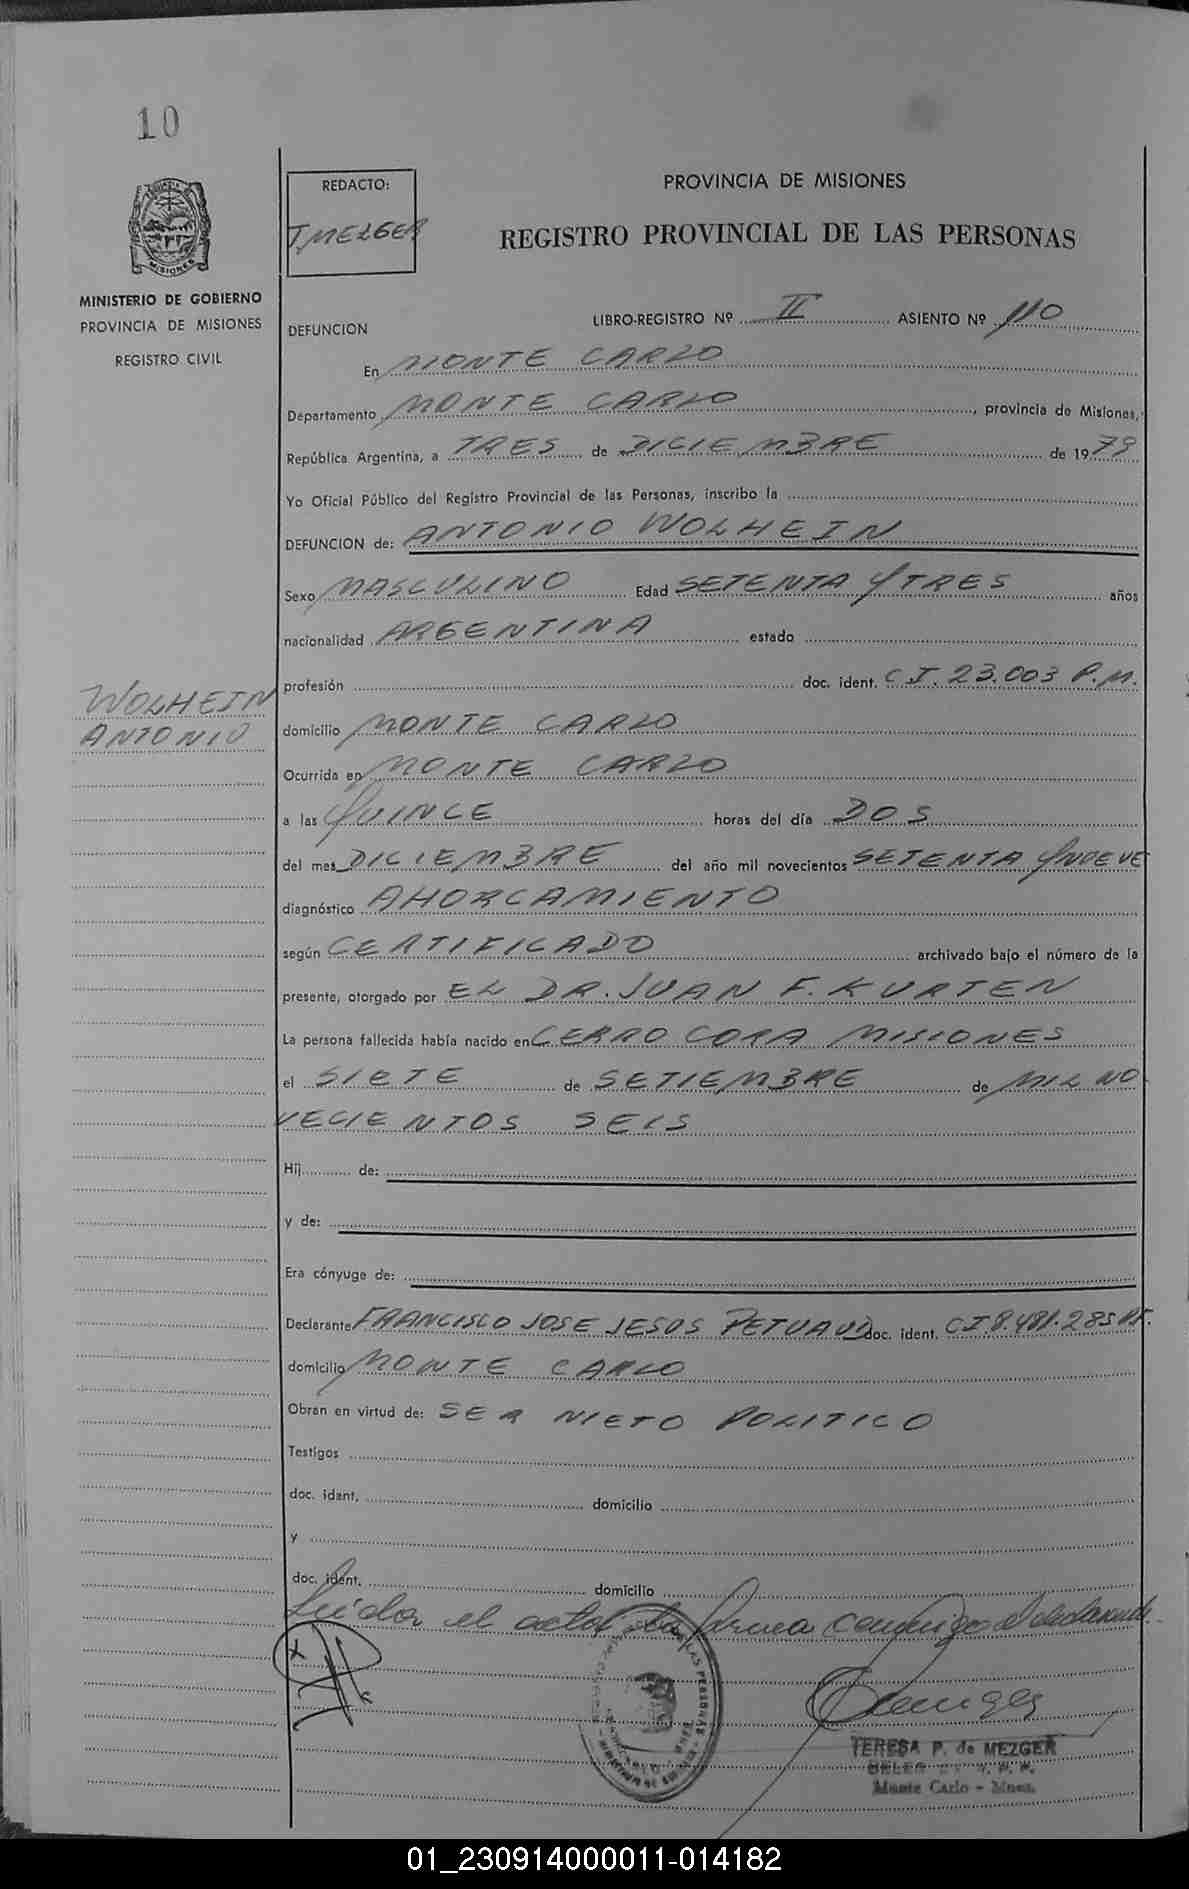 10
REDACTO:
T. MEZGER
PROVINCIA DE MISIONES
REGISTRO PROVINCIAL DE LAS PERSONAS
MINISTERIO DE GOBIERNO
PROVINCIA DE MISIONES
REGISTRO CIVIL
MISIONES
DEFUNCION
LIBRO-REGISTRO Nº II ASIENTO Nº 110
En MONTE CARLO
Departamento MONTE CARLO, provincia de Misiones,
República Argentina, a TRES de DICIEMBRE de 1979
Yo Oficial Público del Registro Provincial de las Personas, inscribo la
DEFUNCION de: ANTONIO WOLHEIN
Sexo MASCULINO Edad SETENTA Y TRES años
nacionalidad ARGENTINA estado
WOLHEIN
ANTONIO
profesión doc. ident. C.I. 23.003 P.M.
domicilio MONTE CARLO
Ocurrida en MONTE CARLO
a las QUINCE horas del día DOS
del mes DICIEMBRE del año mil novecientos SETENTA Y NUEVE
diagnóstico AHORCAMIENTO
según CERTIFICADO archivado bajo el número de la
presente, otorgado por EL DR. JUAN F. KURTEN
La persona fallecida había nacido en CERRO CORA MISIONES
el SIETE de SETIEMBRE de MIL NO
VECIENTOS SEIS
Hij de:
y de:
Era cónyuge de:
Declarante FRANCISCO JOSE JESUS doc. ident. CI 8.481.285
domicilio MONTE CARLO
Obran en virtud de: SER NIETO POLITICO
Testigos
doc. idant. domicilio
y
doc. ident. domicilio
Leida el acta la firma conmigo el declarante.
TERESA P. de MEZGER
Monte Carlo - Mnes.
01_230914000011-014182